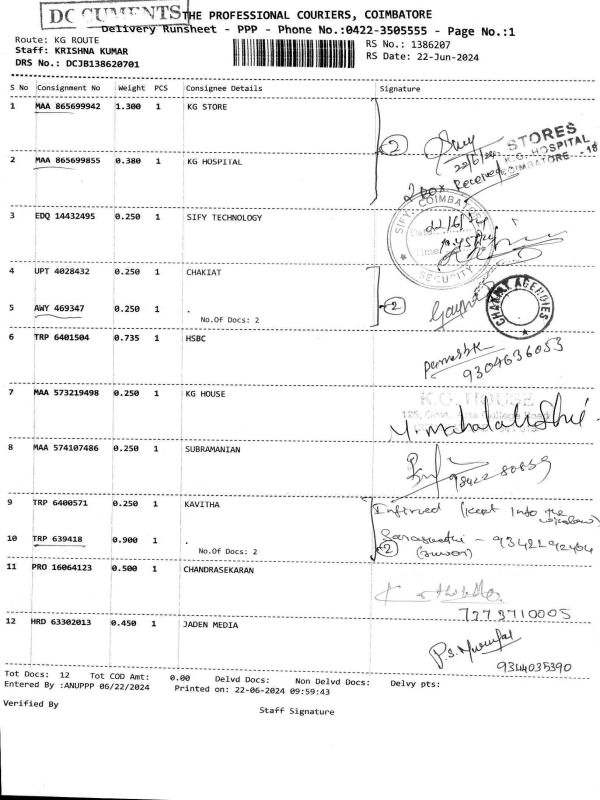 DOCUMENTS
THE PROFESSIONAL COURIERS, COIMBATORE
Delivery Runsheet - PPP - Phone No.:0422-3505555 - Page No.:1
Route: KG ROUTE
RS No.: 1386207
Staff: KRISHNA KUMAR
RS Date: 22-Jun-2024
DRS No.: DCJB138620701
S No Consignment No Weight PCS Consignee Details Signature
1 MAA 865699942 1.300 1 KG STORE
2
22/6/24
STORES
K.G. HOSPITAL
COIMBATORE - 18
2 MAA 865699855 0.380 1 KG HOSPITAL
2 Box Received
3 EDQ 14432495 0.250 1 SIFY TECHNOLOGY
SIFY. COIMBATORE
SECURITY
4 UPT 4028432 0.250 1 CHAKIAT
5 AWY 469347 0.250 1 .
No.Of Docs: 2
2
AGENCIES
6 TRP 6401504 0.735 1 HSBC
9304636053
7 MAA 573219498 0.250 1 KG HOUSE
K.G. HOUSE
8 MAA 574107486 0.250 1 SUBRAMANIAN
9 TRP 6400571 0.250 1 KAVITHA
(Kept Into the window)
10 TRP 639418 0.900 1 .
No.Of Docs: 2
2
9342192464
11 PRO 16064123 0.500 1 CHANDRASEKARAN
7373710005
12 HRD 63302013 0.450 1 JADEN MEDIA
9344035390
Tot Docs: 12 Tot COD Amt: 0.00 Delvd Docs: Non Delvd Docs: Delvy pts:
Entered By :ANUPPP 06/22/2024 Printed on: 22-06-2024 09:59:43
Verified By
Staff Signature